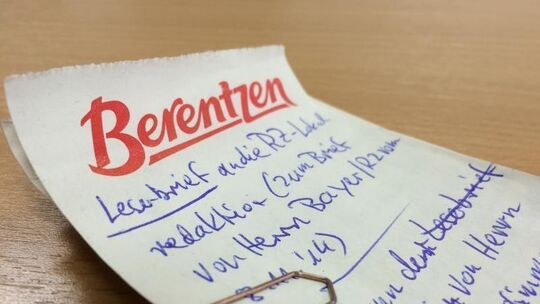 Berentzen
Leserbrief an die RZ-Lokal
redaktion (zum Brief
von Herrn Bayer/RZ vom
8.11.'14)
an dem Leserbrief
von Herrn